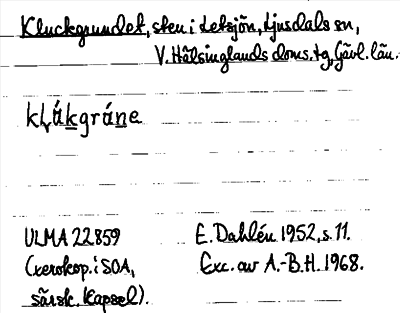 Kluckgrundet, sten i Letsjön, Ljusdals sn,
V. Hälsinglands doms.tg, Gävl. län.
kḷá̲k̲grán̲e
ULMA 22859
E. Dahlén 1952, s. 11.
(xerokop. i SOA,
Exc. av A.-B.H. 1968.
särsk. kapsel).